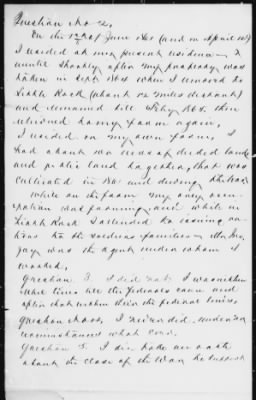 Question No 2.
On the 1st of June 1861 (and in April 1861)
I resided at my present residence &
until shortly after my property was
taken in Sept 1864 when I removed to
Little Rock (about 12 miles distant)
and remained till July 1865 then
returned to my farm again,
I resided on my own farm I
had about acres of deeded land
and public land together, that was
cultivated in 1861 and during the war
while on the farm my only occu-
pation was farming, and while in
Little Rock I attended to issuing ra-
tions to the soldiers families Mr
Jay was the agent under whom I
worked,
Question 3. I did not. I was within
their lines till the federals came and
after that within their the federal lines,
Question No 4, I never did. under no
circumstances what ever.
Question 5. I did take an oath
about the close of the War to support